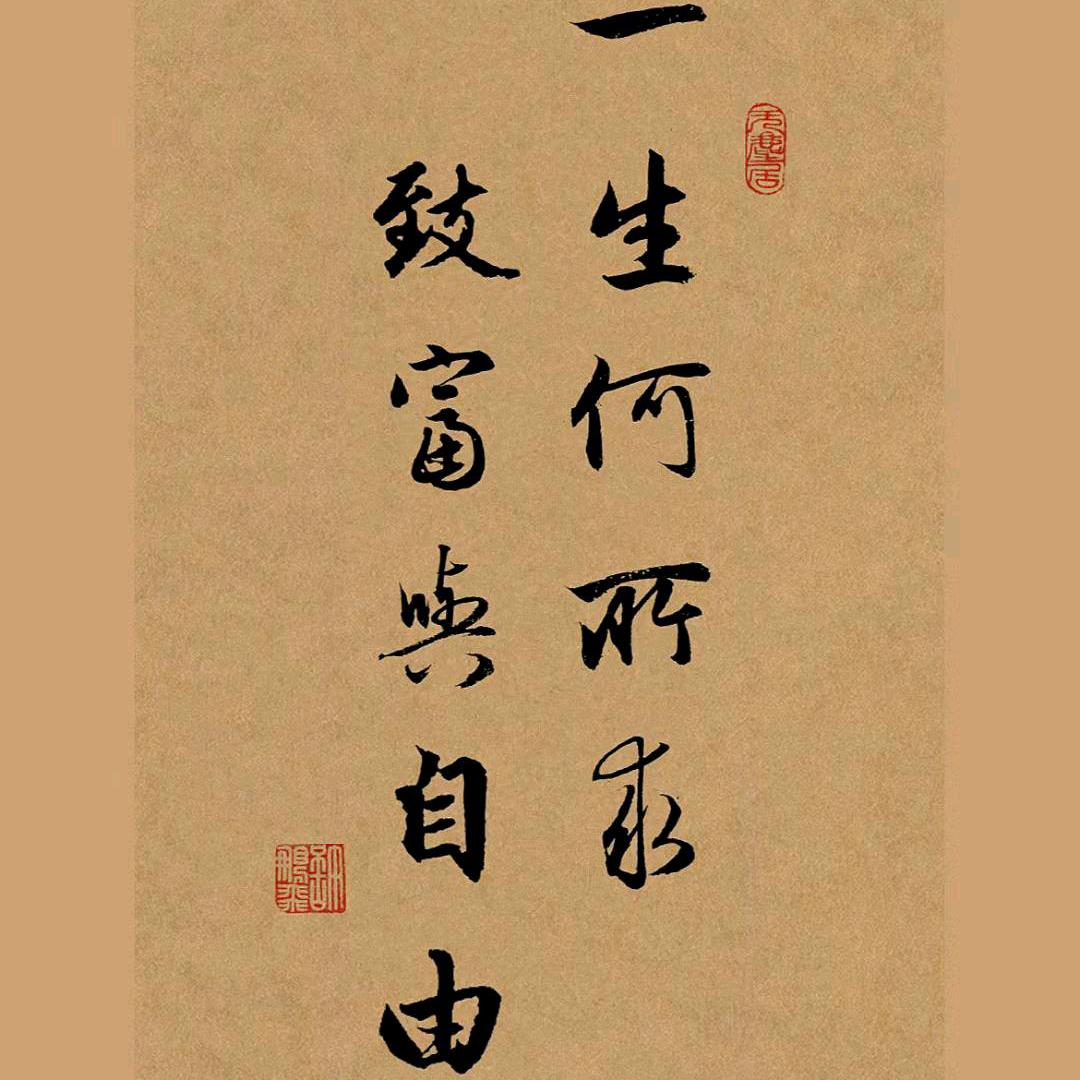 一生何所求
致富與自由